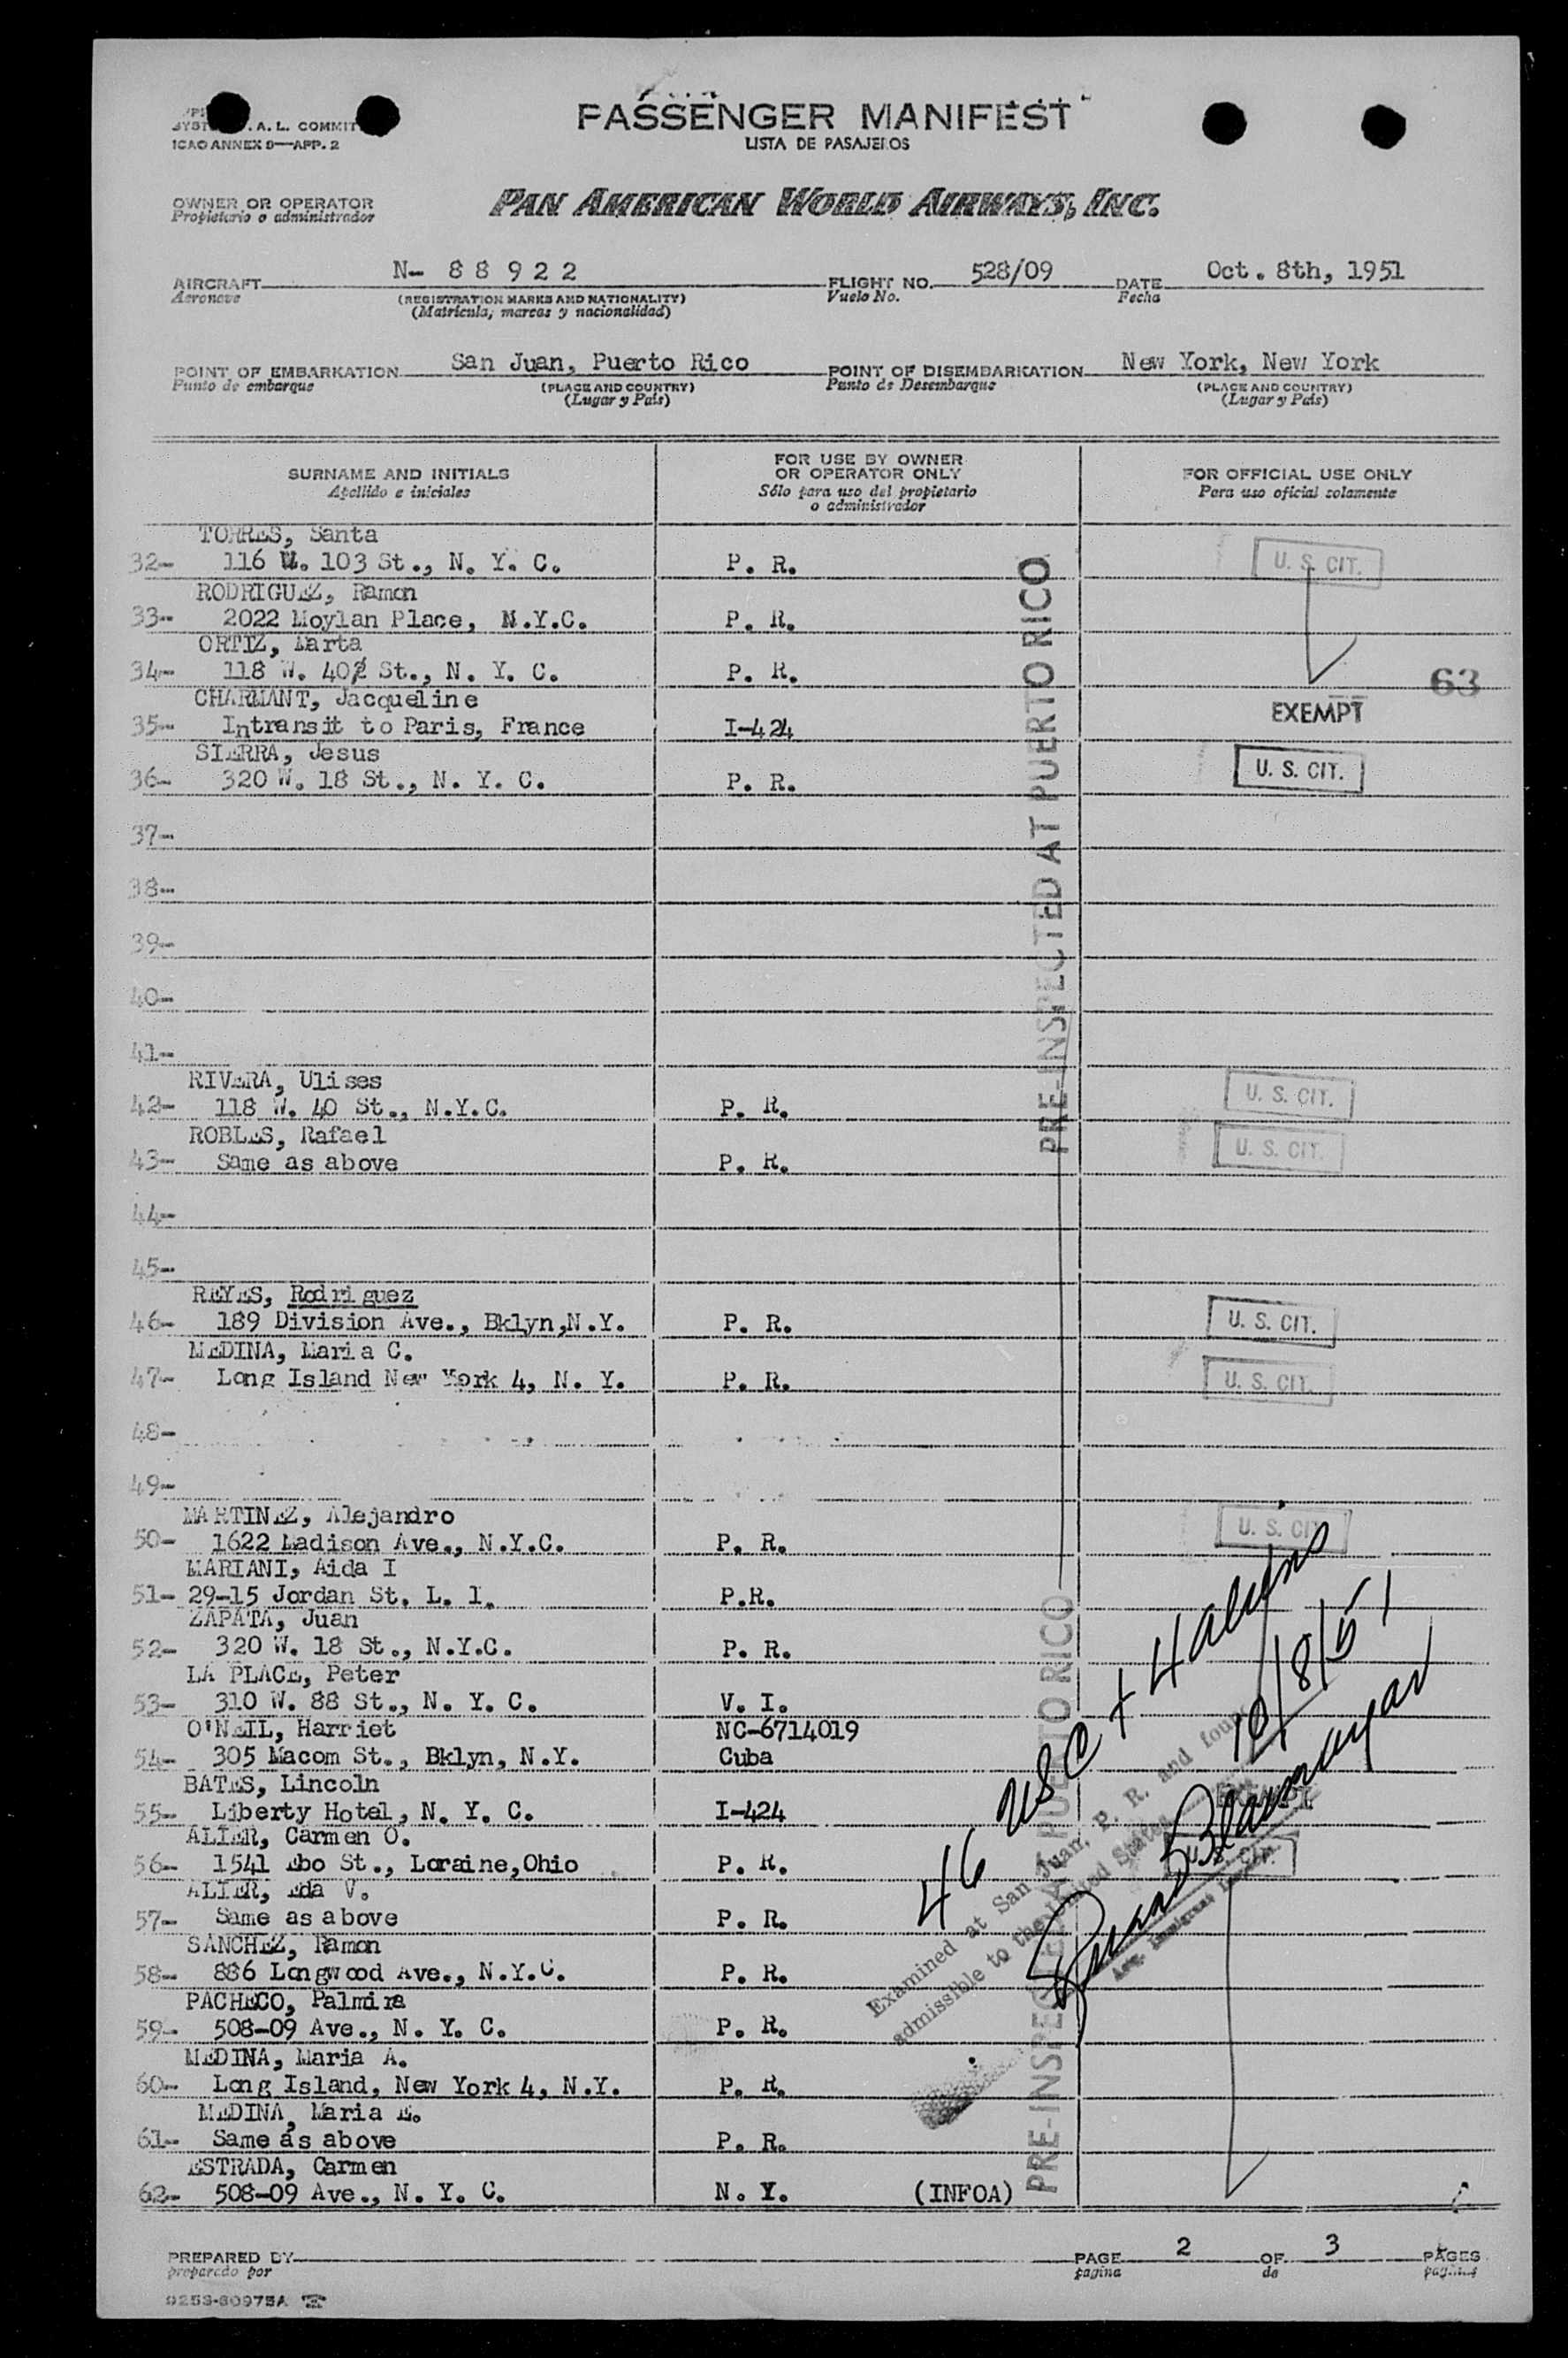 SYST . A. L. COMMIT
ICAO ANNEX 9—APP. 2
PASSENGER MANIFEST
LISTA DE PASAJEROS
OWNER OR OPERATOR
Propietario o administrador
PAN AMERICAN WORLD AIRWAYS, INC.
AIRCRAFT N- 8 8 9 2 2 FLIGHT NO. 528/09 DATE Oct. 8th, 1951
Aeronave (REGISTRATION MARKS AND NATIONALITY) Vuelo No. Fecha
(Matrícula, marcas y nacionalidad)
POINT OF EMBARKATION San Juan, Puerto Rico POINT OF DISEMBARKATION New York, New York
Punto de embarque (PLACE AND COUNTRY) Punto de Desembarque (PLACE AND COUNTRY)
(Lugar y País) (Lugar y País)
SURNAME AND INITIALS FOR USE BY OWNER OR OPERATOR ONLY FOR OFFICIAL USE ONLY
Apellido e iniciales Sólo para uso del propietario o administrador Para uso oficial solamente
TORRES, Santa
32- 116 W. 103 St., N. Y. C. P. R. U. S. CIT.
RODRIGUEZ, Ramon
33- 2022 Moylan Place, N.Y.C. P. R.
ORTIZ, Marta
34- 118 W. 40 St., N. Y. C. P. R. 63
CHARMANT, Jacqueline
35- Intransit to Paris, France I-424 EXEMPT
SIERRA, Jesus
36- 320 W. 18 St., N. Y. C. P. R. U. S. CIT.
37-
38-
39-
40-
41-
PRE-INSPECTED AT PUERTO RICO
RIVERA, Ulises
42- 118 W. 40 St., N.Y.C. P. R. U. S. CIT.
ROBLES, Rafael
43- Same as above P. R. U. S. CIT.
44-
45-
REYES, Rodriguez
46- 189 Division Ave., Bklyn,N.Y. P. R. U. S. CIT.
MEDINA, Maria C.
47- Long Island New York 4, N. Y. P. R. U. S. CIT.
48-
49-
MARTINEZ, Alejandro
50- 1622 Madison Ave., N.Y.C. P. R. U. S. CIT
MARIANI, Aida I
51- 29-15 Jordan St. L. I. P.R.
ZAPATA, Juan
52- 320 W. 18 St., N.Y.C. P. R.
LA PLACE, Peter
53- 310 W. 88 St., N. Y. C. V. I.
O'NEIL, Harriet NC-6714019
54- 305 Macom St., Bklyn, N.Y. Cuba
BATES, Lincoln
55- Liberty Hotel, N. Y. C. I-424 EXEMPT
ALIER, Carmen O.
56- 1541 Ebo St., Loraine,Ohio P. R. U. S. CIT.
ALIER, Eda V.
57- Same as above P. R.
SANCHEZ, Ramon
58- 886 Longwood Ave., N.Y.C. P. R.
PACHECO, Palmira
59- 508-09 Ave., N. Y. C. P. R.
MEDINA, Maria A.
60- Long Island, New York 4, N.Y. P. R.
MEDINA, Maria E.
61- Same as above P. R.
ESTRADA, Carmen
62- 508-09 Ave., N. Y. C. N. Y. (INFOA)
PRE-INSPECTED AT PUERTO RICO
46 USC + 4 aliens
10/8/51
Examined at San Juan, P. R. and found
admissible to the United States
PREPARED BY PAGE 2 OF 3 PAGES
preparado por pagina de paginas
9253-60975A